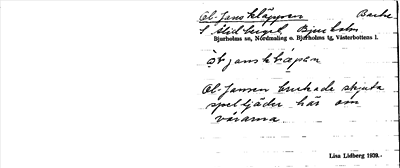 Ol-Jansklåppen Backe
S Alidberget, Bjurholm
Bjurholms sn, Nordmaling o. Bjurholms tg, Västerbottens l.
Ol-Jansen brukade skjuta
speltjäder här om
vårarna
Lisa Lidberg 1939.-